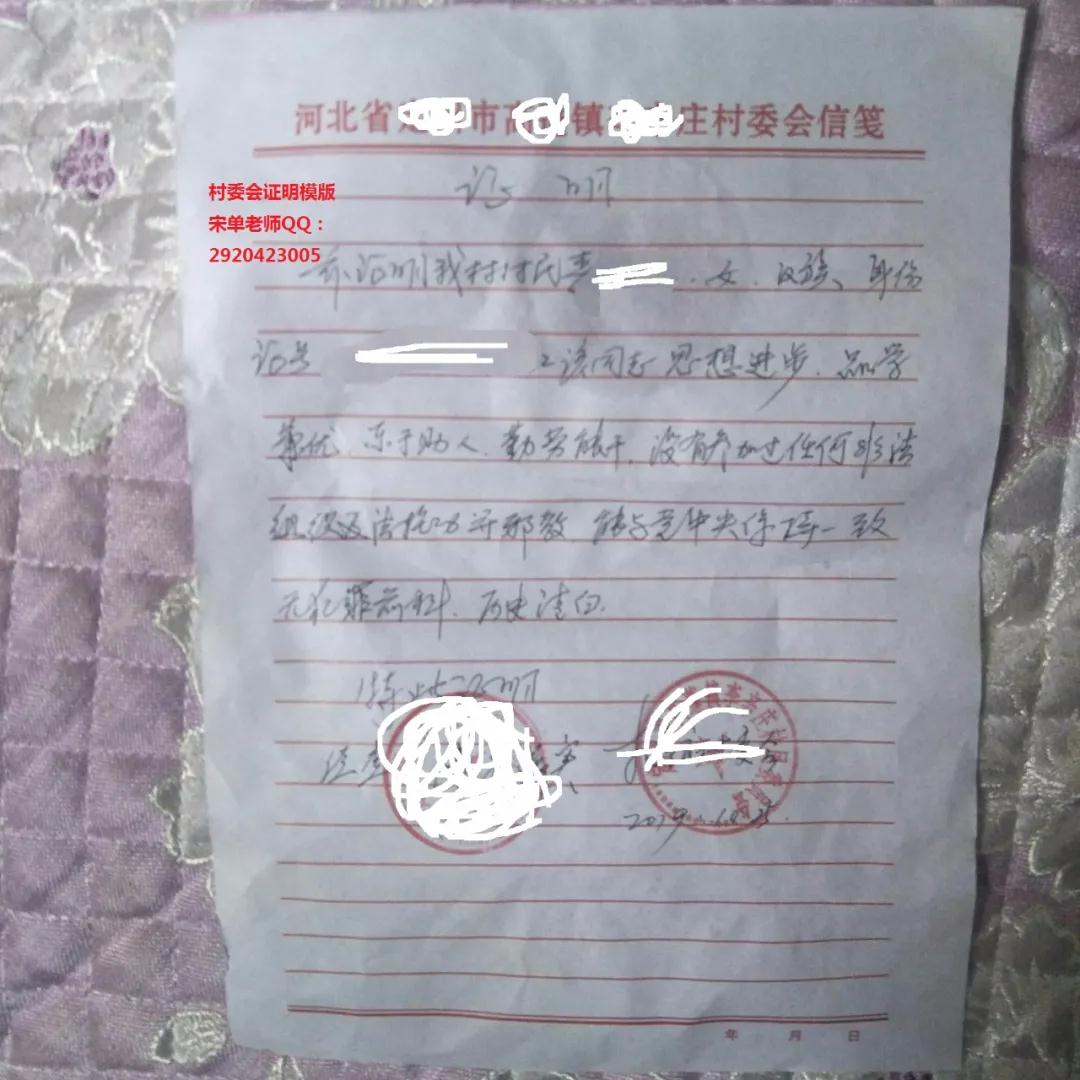 河北省 市高 镇 庄村委会信笺
村委会证明模版
宋单老师QQ：
2920423005
证 明
兹证明我村村民 女、汉族、身份
证号 该同志思想进步、品学
兼优、乐于助人、勤劳能干、没有参加过任何非法
组织及法轮功等邪教 能与党中央保持一致
无犯罪前科、历史清白.
特此证明
年 月 日